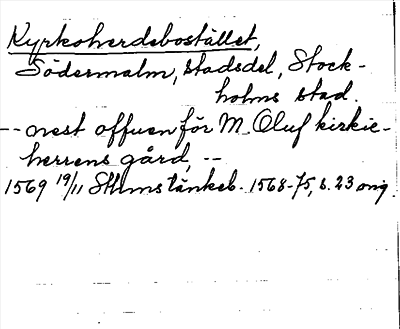 Kyrkoherdebostället,
Södermalm, stadsdel, Stock-
holms stad.
-- nest offuen för M. Oluf kirkie-
herrens gård, --
1569 19/11 Sthms tänkeb. 1568-75, s. 23 orig.